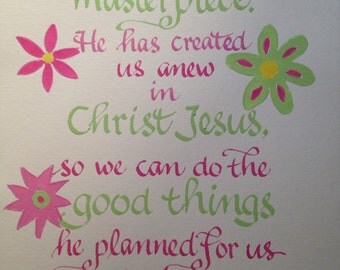 masterpiece.
He has created
us anew
in
Christ Jesus,
so we can do the
good things
he planned for us